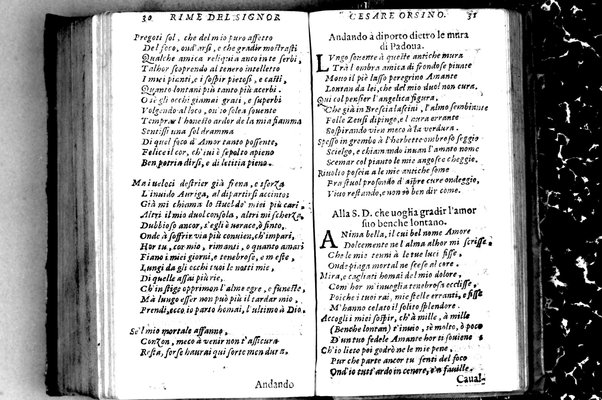 30 RIME DEL SIGNOR
Pregoti sol, che del mio puro affetto
Del foco, ond'arsi, e che gradir mostrasti
Qualche amica reliquia anco in te serbi,
Talhor scoprendo al tenero intelletto
I miei pianti, e i sospir pietosi, e casti,
Quanto lontani più tanto più acerbi.
O se gli occhi giamai grati, e superbi
Volgendo al loco, ou'io solea souente
Temprar l'honesto ardor de la mia fiamma
Sentissi una sol dramma
Di quel foco d'Amor tanto possente,
Felice il cor, ch'iui è sepolto apieno
Ben potria dirsi, e di letitia pieno.
Mai veloci destrier già frena, e sferza
L'inuido Auriga, al dipartirsi accento;
Già mi chiama lo stuol de' miei più cari,
Altri il mio duol consola, altri mi scherza
Dubbioso ancor, s'egli è verace, ò finto.
Onde à soffrir via più conuien, ch'impari,
Hor tu, cor mio, rimanti, o quanto amari
Fiano i miei giorni, e tenebrosi, e meste,
Lungi da gli occhi tuoi le notti mie,
Di quelle assai più rie,
Ch'in stige opprimon l'alme egre, e funeste,
Ma lungo esser non può più il tardar mio.
Prendi, ecco io parto homai, l'ultimo à Dio.
Se'l mio mortale affanno,
Canzon, meco à venir non t'assicura
Resta, forse haurai qui sorte men dura.
Andando
CESARE ORSINO. 31
Andando à diporto dietro le mura
di Padoua.
LVngo souente à queste antiche mura
Trà l'ombra amica di frondose piante
Mouo il piè lasso peregrino Amante
Lontan da lei, che del mio duol non cura.
Qui col pensier l'angelica figura,
Che già in Brescia lasciai, l'almo sembiante
Folle Zeusi dipingo, e l'aura errante
Sospirando vien meco à la verdura.
Spesso in grembo à l'herbette ombroso seggio
Scielgo, e chiamando inuan l'amato nome
Scemar col pianto le mie angosce cheggio,
Riuolto poscia a le mie antiche some
Fra stuol profondo d'aspre cure ondeggio,
Viuo restando, e non sò ben dir come.
Alla S. D. che uoglia gradir l'amor
suo benche lontano.
ANima bella, il cui bel nome Amore
Dolcemente ne l'alma alhor mi scrisse,
Che le mie tenni à le tue luci fisse,
Onde piaga mortal ne scese al core.
Mira, e cagliati homai del mio dolore,
Com hor m'inuoglia tenebroso ecclisse,
Poiche i tuoi rai, mie stelle erranti, e fisse
M'hanno celato il solito splendore.
Accogli i miei sospir, ch'à mille, à mille
(Benche lontan) t'inuio, sè molto, ò poco
D'un tuo fedele Amante hor ti souiene
Ch'io lieto poi godrò ne le mie pene,
Pur che parte ancor tu senti del foco
Ond'io tutt'ardo in cenere, e'n fauille.
Caual-